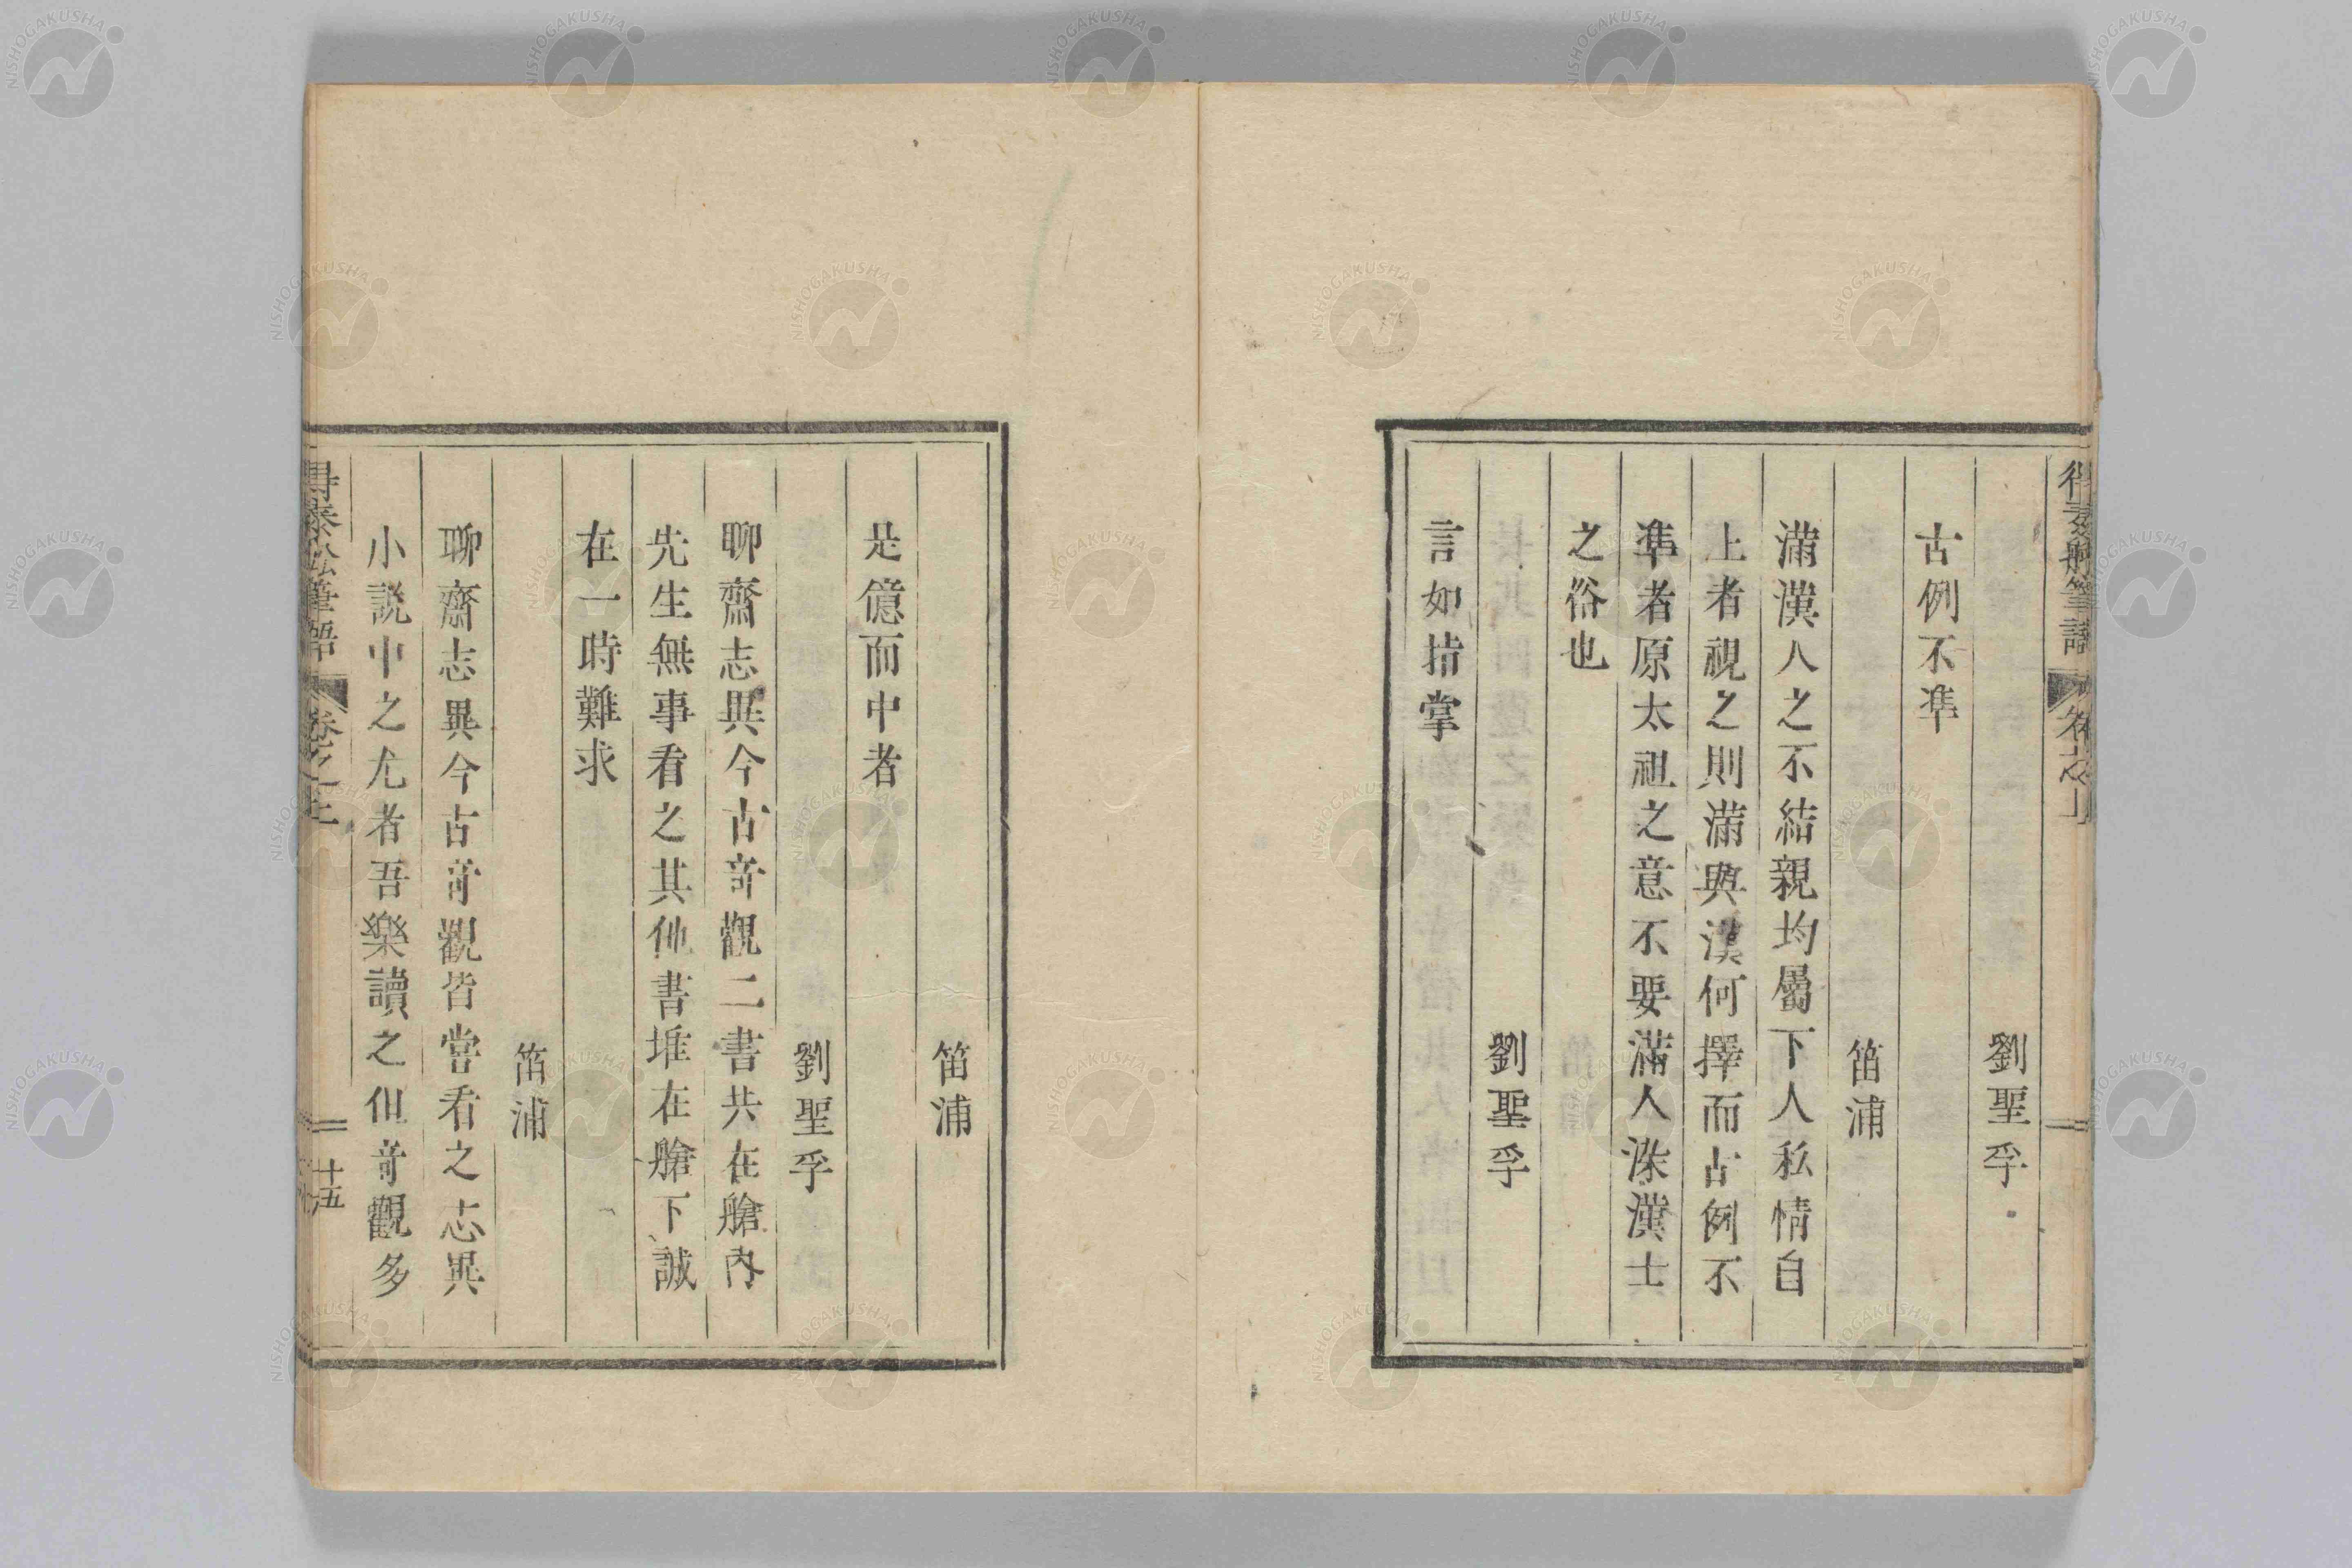 劉聖孚
古例不準
笛浦
滿漢人之不結親均屬下人私情自
上者視之則滿與漢何擇而古例不
準者原太祖之意不要滿人染漢士
之俗也
劉聖孚
言如指掌
笛浦
是億而中者
劉聖孚
聊齋志異今古奇觀二書共在艙內
先生無事看之其他書堆在艙下誠
在一時難求
笛浦
聊齋志異今古奇觀皆嘗看之志異
小説中之尤者吾樂讀之但奇觀多
得泰船筆語 卷之上 十五
NISHOGAKUSHA